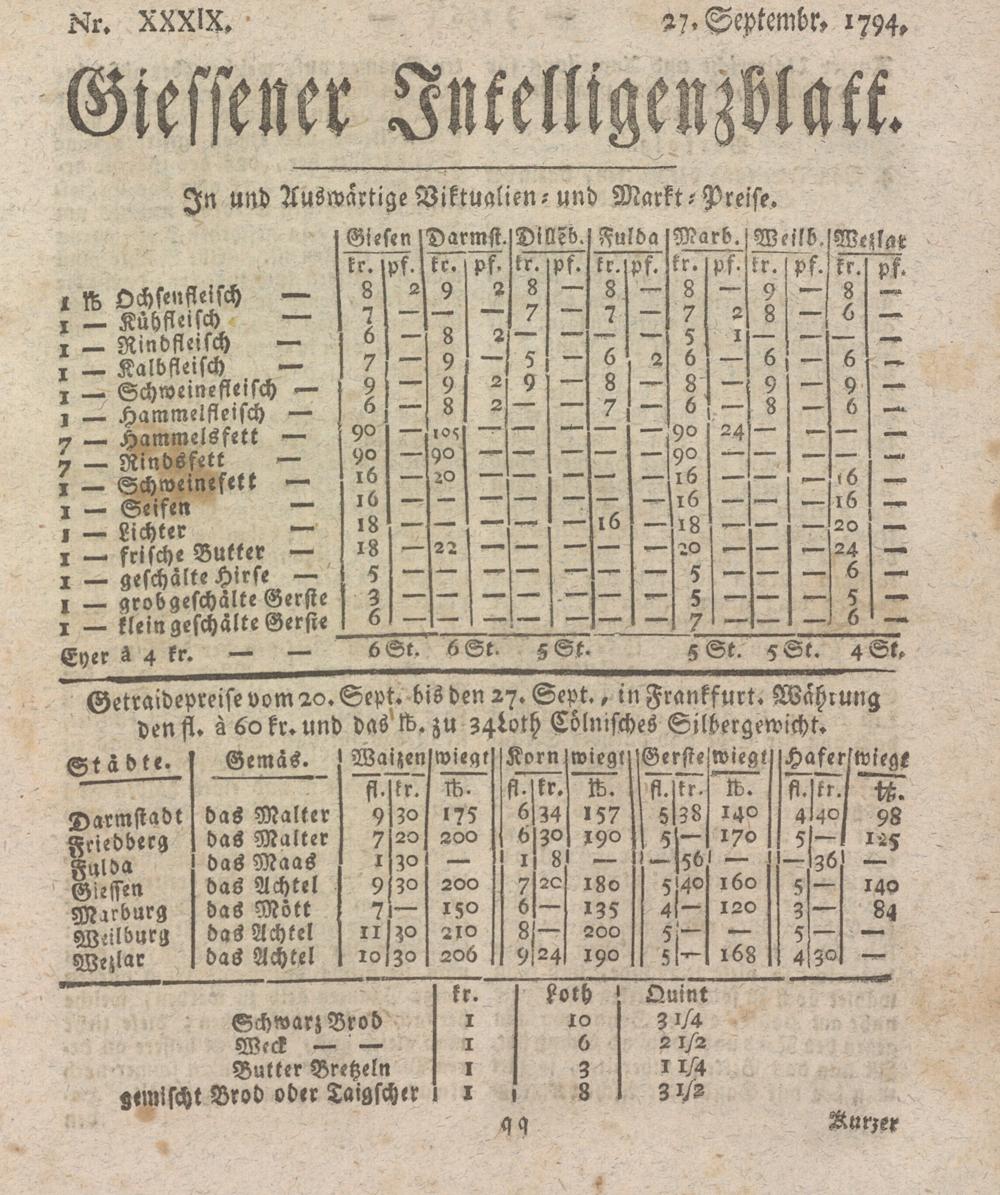 Nr. XXXIX. 27. Septembr. 1794.
Giessener Intelligenzblatt.
In und Auswärtige Viktualien- und Markt-Preise.
Giesen | Darmst. | Dilleb. | Fulda | Marb. | Weilb. | Wezlar
kr. | pf. | kr. | pf. | kr. | pf. | kr. | pf. | kr. | pf. | kr. | pf. | kr. | pf.
1 ℔ Ochsenfleisch — 8 | 2 | 9 | 2 | 8 | — | 8 | — | 8 | — | 9 | — | 8 | —
1 — Kühfleisch — 7 | — | — | — | 7 | — | 7 | — | 7 | 2 | 8 | — | 6 | —
1 — Rindfleisch — 6 | — | 8 | 2 | — | — | — | — | 5 | 1 | — | — | — | —
1 — Kalbfleisch — 7 | — | 9 | — | 5 | — | 6 | 2 | 6 | — | 6 | — | 6 | —
1 — Schweinefleisch — 9 | — | 9 | 2 | 9 | — | 8 | — | 8 | — | 9 | — | 9 | —
1 — Hammelfleisch — 6 | — | 8 | 2 | — | — | 7 | — | 6 | — | 8 | — | 6 | —
7 — Hammelsfett — 90 | — | 105 | — | — | — | — | — | 90 | 24 | — | — | — | —
7 — Rindsfett — 90 | — | 90 | — | — | — | — | — | 90 | — | — | — | — | —
1 — Schweinefett — 16 | — | 20 | — | — | — | — | — | 16 | — | — | — | 16 | —
1 — Seifen — 16 | — | — | — | — | — | — | — | 16 | — | — | — | 16 | —
1 — Lichter — 18 | — | — | — | — | — | 16 | — | 18 | — | — | — | 20 | —
1 — frische Butter — 18 | — | 22 | — | — | — | — | — | 20 | — | — | — | 24 | —
1 — geschälte Hirse — 5 | — | — | — | — | — | — | — | 5 | — | — | — | 6 | —
1 — grob geschälte Gerste 3 | — | — | — | — | — | — | — | 5 | — | — | — | 5 | —
1 — klein geschälte Gerste 6 | — | — | — | — | — | — | — | 7 | — | — | — | 6 | —
Eyer à 4 kr. — — 6 St. 6 St. 5 St. 5 St. 5 St. 4 St.
Getraidepreise vom 20. Sept. bis den 27. Sept., in Frankfurt. Währung
den fl. à 60 kr. und das ℔. zu 34 Loth Cölnisches Silbergewicht.
Städte. | Gemäs. | Waizen | wiegt | Korn | wiegt | Gerste | wiegt | Hafer | wiegt
fl. | kr. | ℔. | fl. | kr. | ℔. | fl. | kr. | ℔. | fl. | kr. | ℔.
Darmstadt | das Malter | 9 | 30 | 175 | 6 | 34 | 157 | 5 | 38 | 140 | 4 | 40 | 98
Friedberg | das Malter | 7 | 20 | 200 | 6 | 30 | 190 | 5 | — | 170 | 5 | — | 125
Fulda | das Maas | 1 | 30 | — | 1 | 8 | — | — | 56 | — | — | 36 | —
Giessen | das Achtel | 9 | 30 | 200 | 7 | 20 | 180 | 5 | 40 | 160 | 5 | — | 140
Marburg | das Mött | 7 | — | 150 | 6 | — | 135 | 4 | — | 120 | 3 | — | 84
Weilburg | das Achtel | 11 | 30 | 210 | 8 | — | 200 | 5 | — | — | 5 | — | —
Wezlar | das Achtel | 10 | 30 | 206 | 9 | 24 | 190 | 5 | — | 168 | 4 | 30 | —
kr. | Loth | Quint
Schwarz Brod | 1 | 10 | 3 1/4
Weck — — | 1 | 6 | 2 1/2
Butter Bretzeln | 1 | 3 | 1 1/4
gemischt Brod oder Taigscher | 1 | 8 | 3 1/2
qq Kurzer